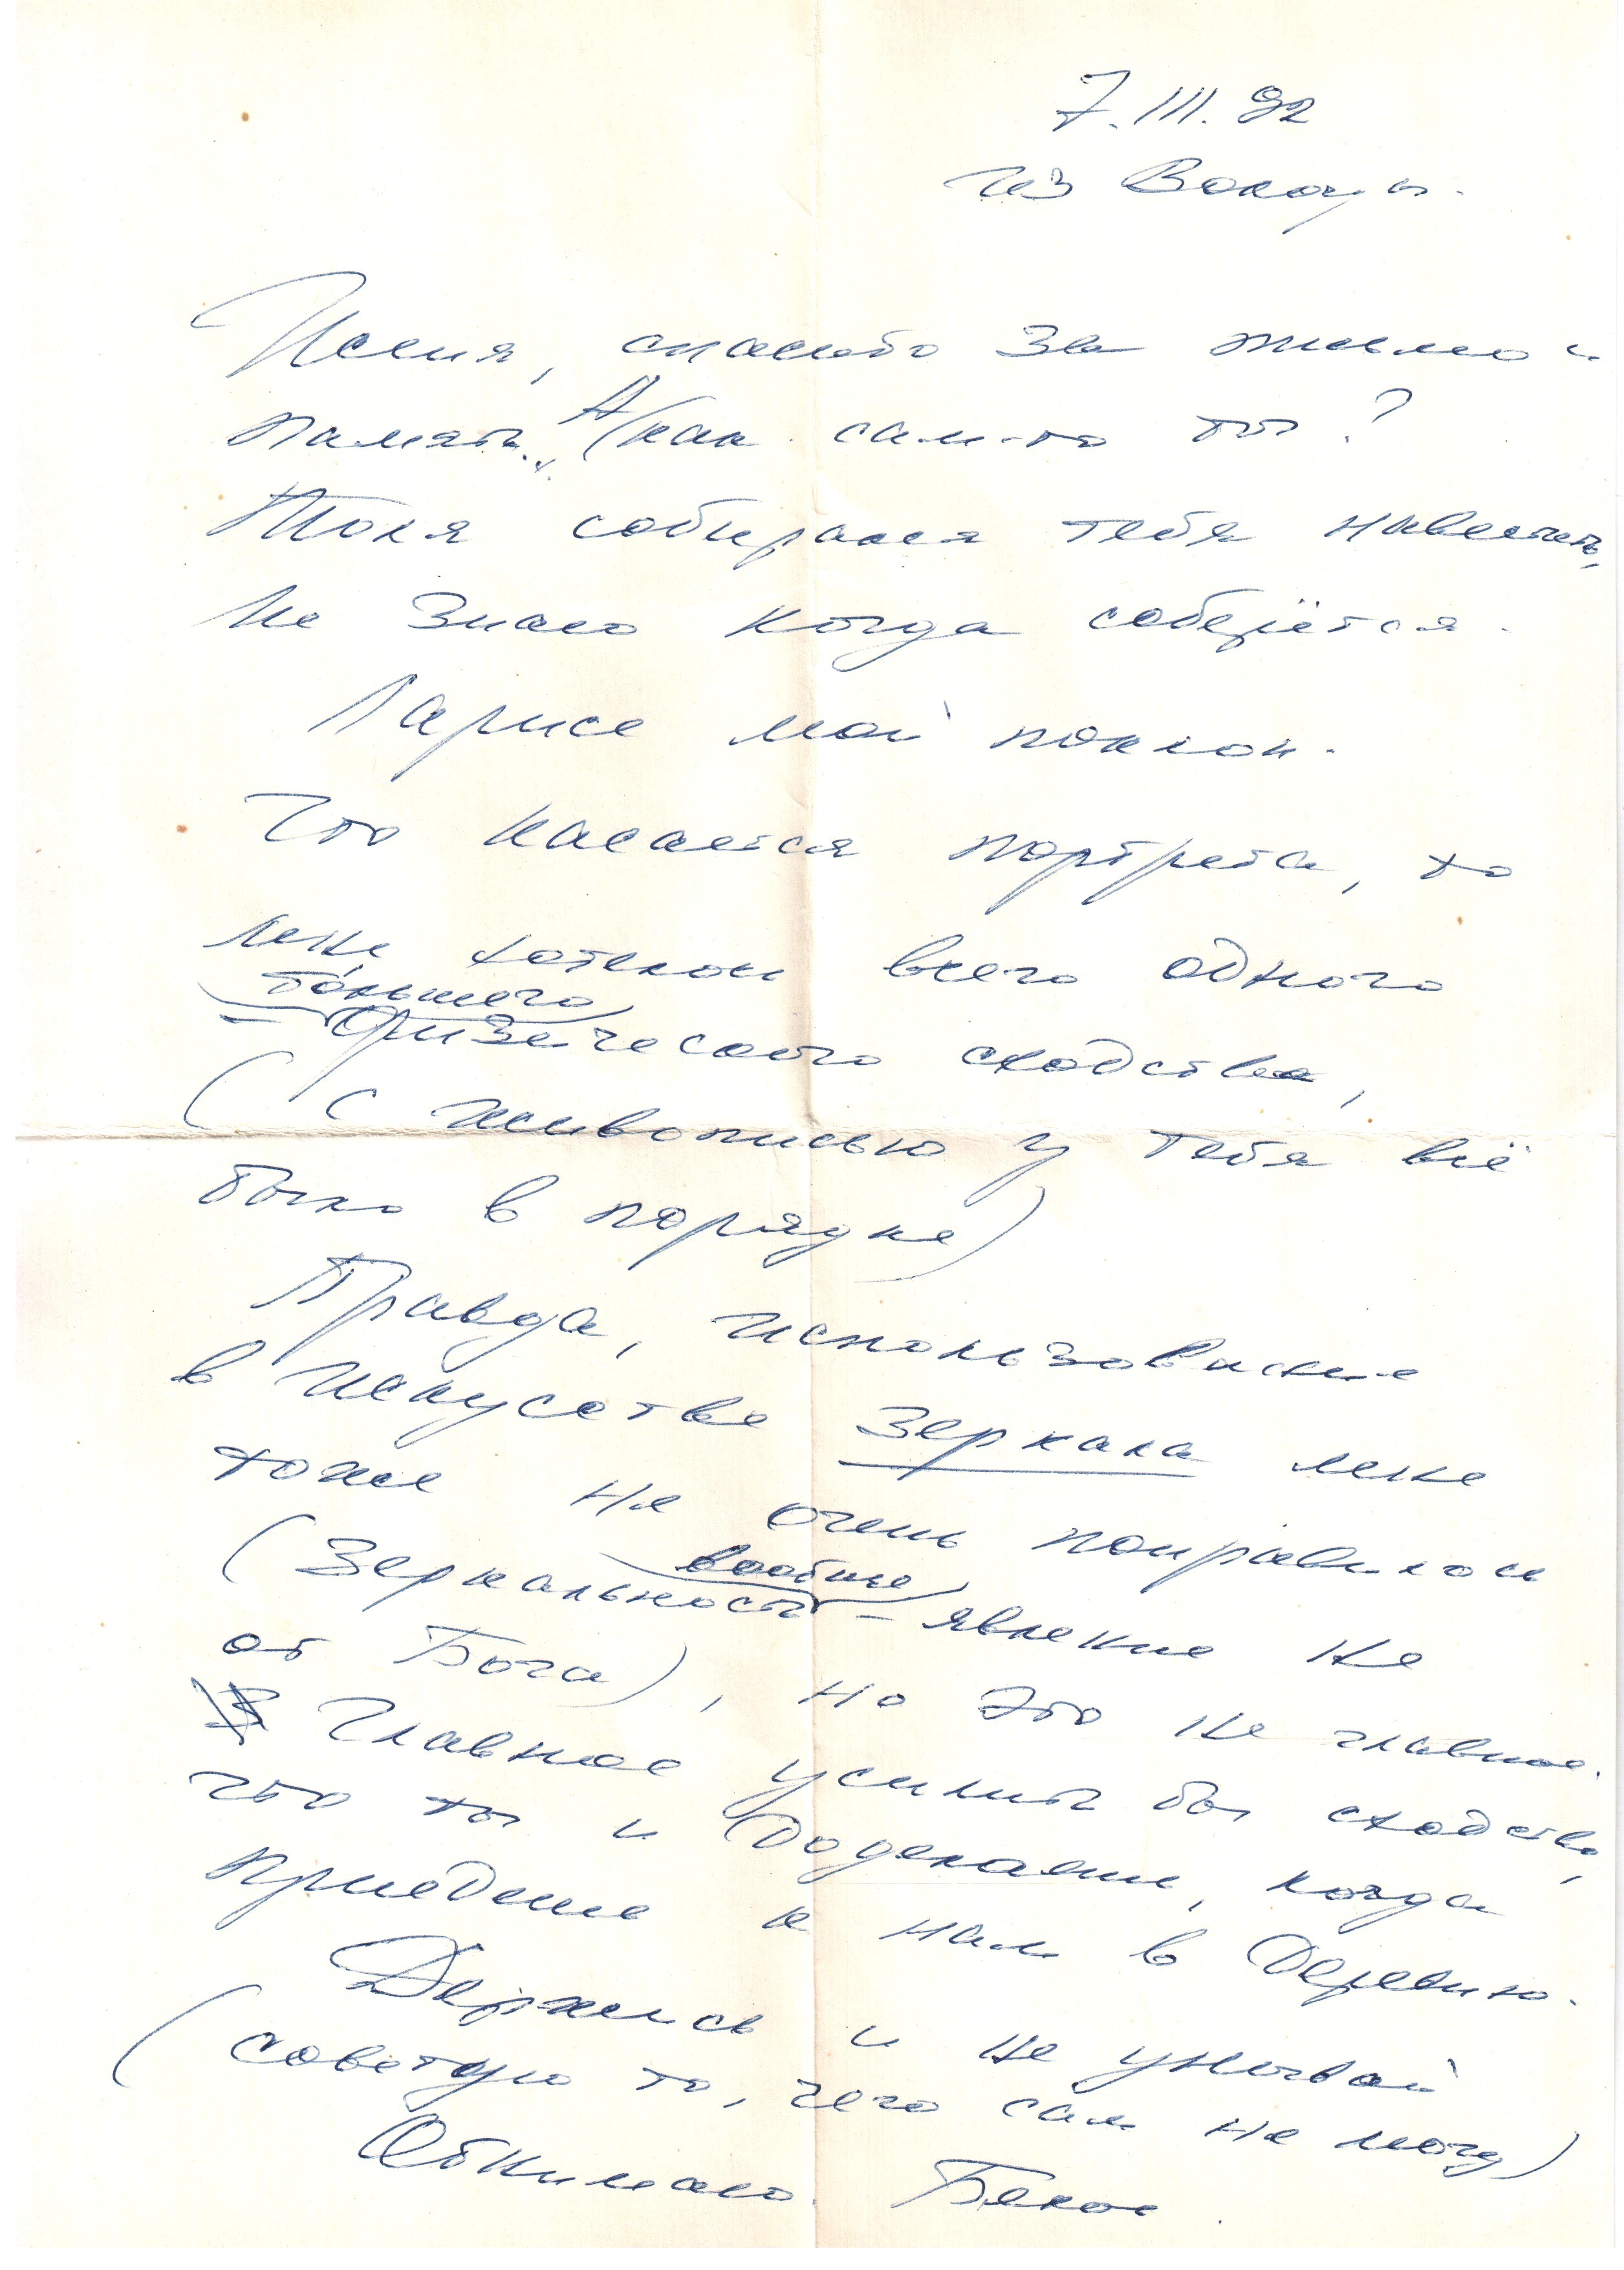 7.III.92
из Вологды.
спасибо за письмо и
память. А как сам-то ты?
Толя собирался тебя навестить,
не знаю когда соберётся.
Ларисе мой поклон.
Что касается портрета, то
мне хотелось всего одного
большего
– физического сходства,
(с живописью у тебя всё
было в порядке)
Правда, использование
в искусстве зеркала мне
тоже не очень понравилось
вообще
(Зеркальность – явление не
от Бога), но это не главное.
Главное усилить бы сходство,
что ты и доделаешь, когда
приедешь к нам в деревню.
Держись и не унывай
(советую то, чего сам не могу)
Обнимаю. Белов.